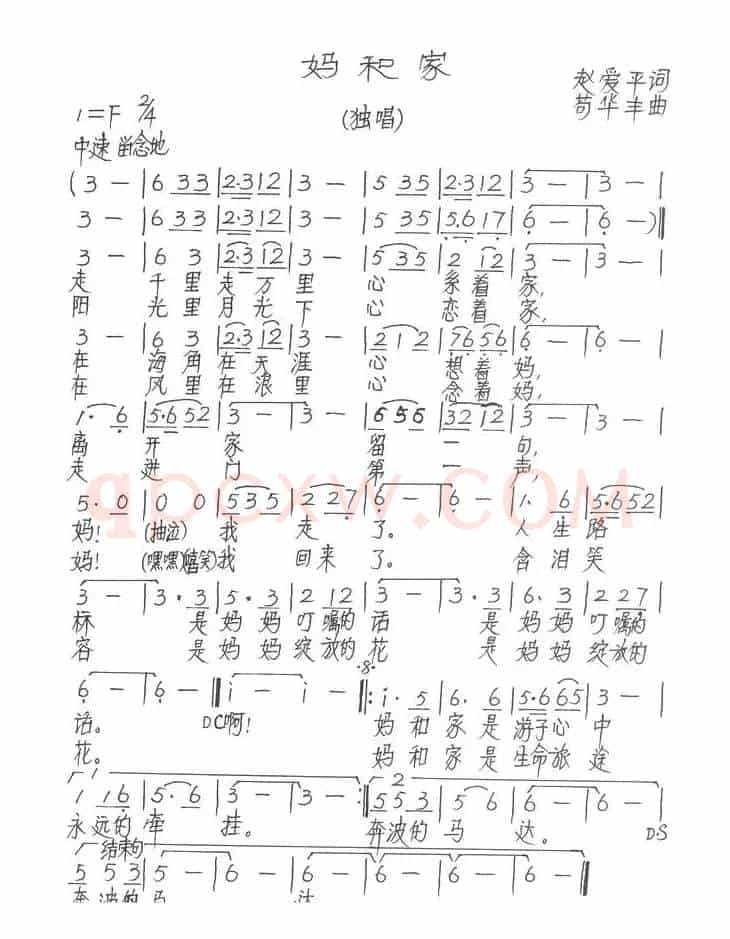 妈和家
赵爱平词
苟华丰曲
(独唱)
1=F 2/4
中速 留念地
(3 - | 6 33 | 2·312 | 3 - | 5 35 | 2·312 | 3 - | 3 - |
3 - | 6 33 | 2·312 | 3 - | 5 35 | 5·617 | 6 - | 6 -)‖
3 - | 6 3 | 2·312 | 3 - | 535 | 2 12 | 3 - | 3 - |
走 千里走万里 心 系着家,
阳 光里月光下 心 恋着家,
3 - | 6 3 | 2·312 | 3 - | 212 | 7656 | 6 - | 6 - |
在 海角在天涯 心 想着妈,
在 风里在浪里 心 念着妈,
1· 6 | 5·652 | 3 - | 3 - | 656 | 3212 | 3 - | 3 - |
离 开 家 留 一 句,
走 进 门 第 一 声,
5·0 | 0 0 | 535 | 2 27 | 6 - | 6 - | 1· 6 | 5·652 |
妈! (抽泣) 我 走 了。 人生路
妈! (嘿嘿)(嬉笑)我 回来 了。 含泪笑
3 - | 3·3 | 5·3 | 2 12 | 3 - | 3·3 | 5·3 | 2 27 |
标 是妈妈叮嘱的话 是妈妈叮嘱的
容 是妈妈绽放的花 是妈妈绽放的
6 - | 6 - ‖ i - | i - ‖: i· 5 | 6· 6 | 5·665 | 3 - |
话。 DC啊! 妈和家是游子心中
花。 妈和家是生命旅途
·8·
1 2
1 16 | 5·6 | 3 - | 3 - :‖ 553 | 5 6 | 6 - | 6 - |
永远的牵挂。 奔波的马 达。 DS
结束句
5 53 | 5 - | 6 - | 6 - | 6 - | 6 - | 6 - ‖
奔波的马 达
qpcxw.COM